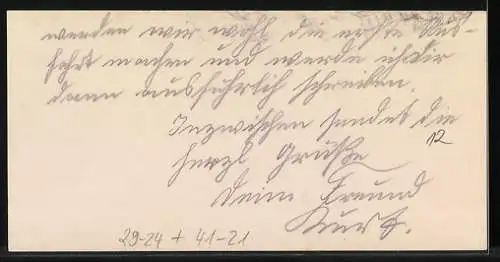 werden wir wohl die erste Aus-
fahrt machen und werde ich dir
dann ausführlich schreiben.
Inzwischen sendet die
herzl Grüße
Dein Freund
Kurt.
12
29-24 + 41-21